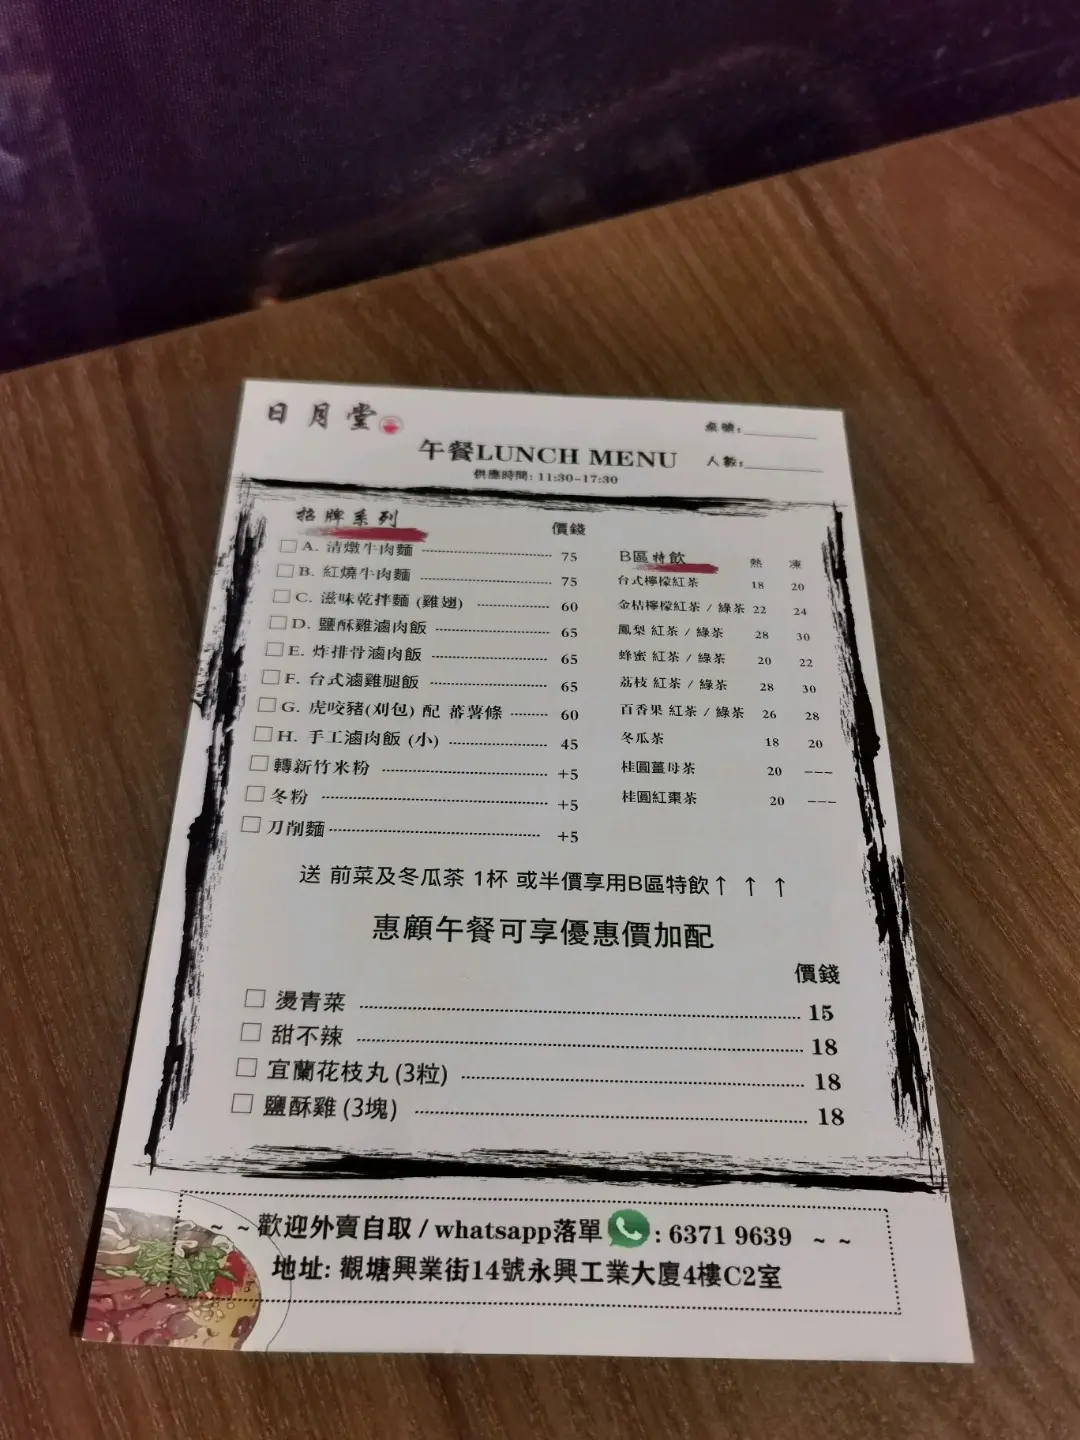 日月堂
桌號:
午餐LUNCH MENU
人數:
供應時間: 11:30-17:30
招牌系列
價錢
A. 清燉牛肉麵 75
B. 紅燒牛肉麵 75
C. 滋味乾拌麵 (雞翅) 60
D. 鹽酥雞滷肉飯 65
E. 炸排骨滷肉飯 65
F. 台式滷雞腿飯 65
G. 虎咬豬(刈包) 配 蕃薯條 60
H. 手工滷肉飯 (小) 45
轉新竹米粉 +5
冬粉 +5
刀削麵 +5
B區特飲 熱 凍
台式檸檬紅茶 18 20
金桔檸檬紅茶 / 綠茶 22 24
鳳梨 紅茶 / 綠茶 28 30
蜂蜜 紅茶 / 綠茶 20 22
荔枝 紅茶 / 綠茶 28 30
百香果 紅茶 / 綠茶 26 28
冬瓜茶 18 20
桂圓薑母茶 20 ---
桂圓紅棗茶 20 ---
送 前菜及冬瓜茶 1杯 或半價享用B區特飲↑ ↑ ↑
惠顧午餐可享優惠價加配
價錢
燙青菜 15
甜不辣 18
宜蘭花枝丸 (3粒) 18
鹽酥雞 (3塊) 18
~ ~ 歡迎外賣自取 / whatsapp落單 : 6371 9639 ~ ~
地址: 觀塘興業街14號永興工業大廈4樓C2室